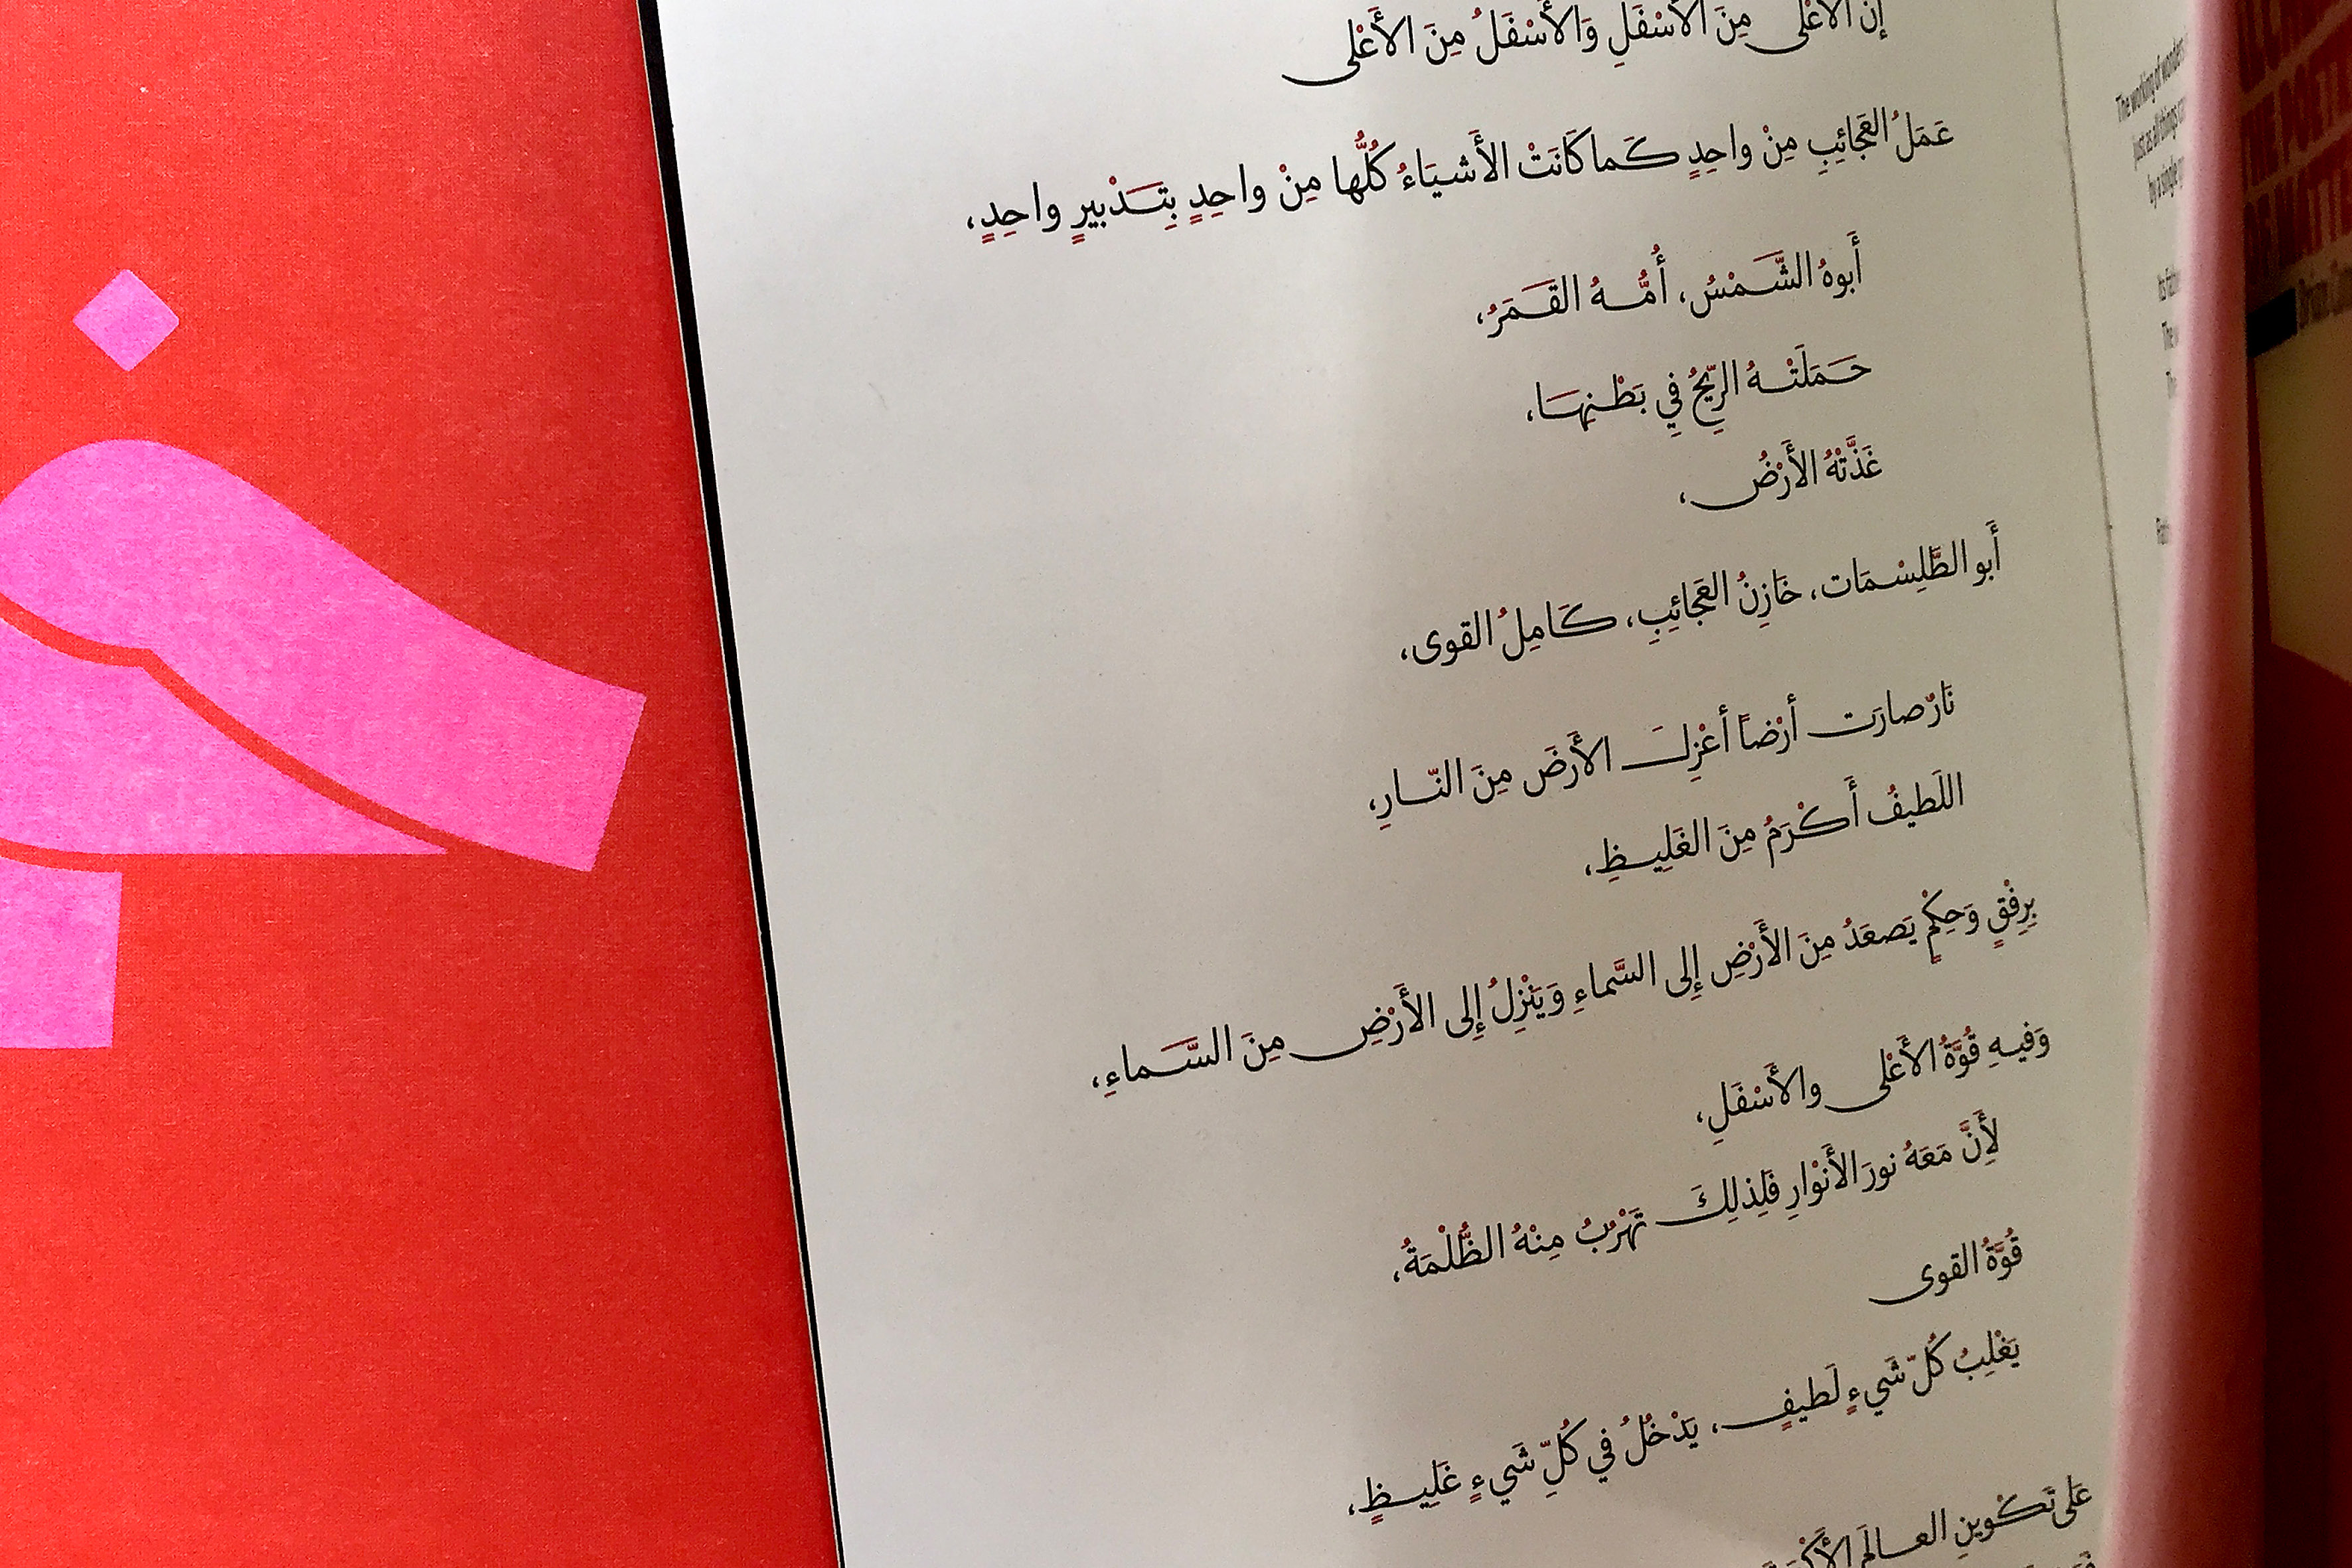 إنّ الأَعْلى مِنَ الأَسْفَلِ وَالأَسْفَلُ مِنَ الأَعْلى
عَمَلُ العَجَائِبِ مِنْ واحِدٍ كَما كَانَتْ الأَشْيَاءُ كُلُّها مِنْ واحِدٍ بِتَدْبيرٍ واحِدٍ،
أَبوهُ الشَّمْسُ، أُمُّهُ القَمَرُ،
حَمَلَتْهُ الرِّيحُ فِي بَطْنِهَا،
غَذَّتْهُ الأَرْضُ،
أَبو الطَّلِسْمَات، خَازِنُ العَجَائِبِ، كَامِلُ القوى،
نَارٌ صارَت أرْضاً أعْزِلَ الأَرَضَ مِنَ النّارِ،
اللَطيفُ أَكْرَمُ مِنَ الغَلِيظِ،
بِرِفْقٍ وَحِكْمٍ يَصعَدُ مِنَ الأَرْضِ إِلى السَّماءِ وَيَنْزِلُ إِلى الأَرْضِ مِنَ السَّماءِ،
وَفيهِ قُوَّةُ الأَعْلى والأَسْفَلِ،
لأَِنَّ مَعَهُ نورَ الأَنْوارِ فَلِذلِكَ تَهْرُبُ مِنْهُ الظُّلْمَةُ،
قُوَّةُ القوى
يَغْلِبُ كُلّ شَيءٍ لَطيفٍ، يَدْخُلُ في كُلِّ شَيءٍ غَلِيظٍ،
عَلى تَكْوينِ العالَمِ
The working of wonders
just as all things
by a single